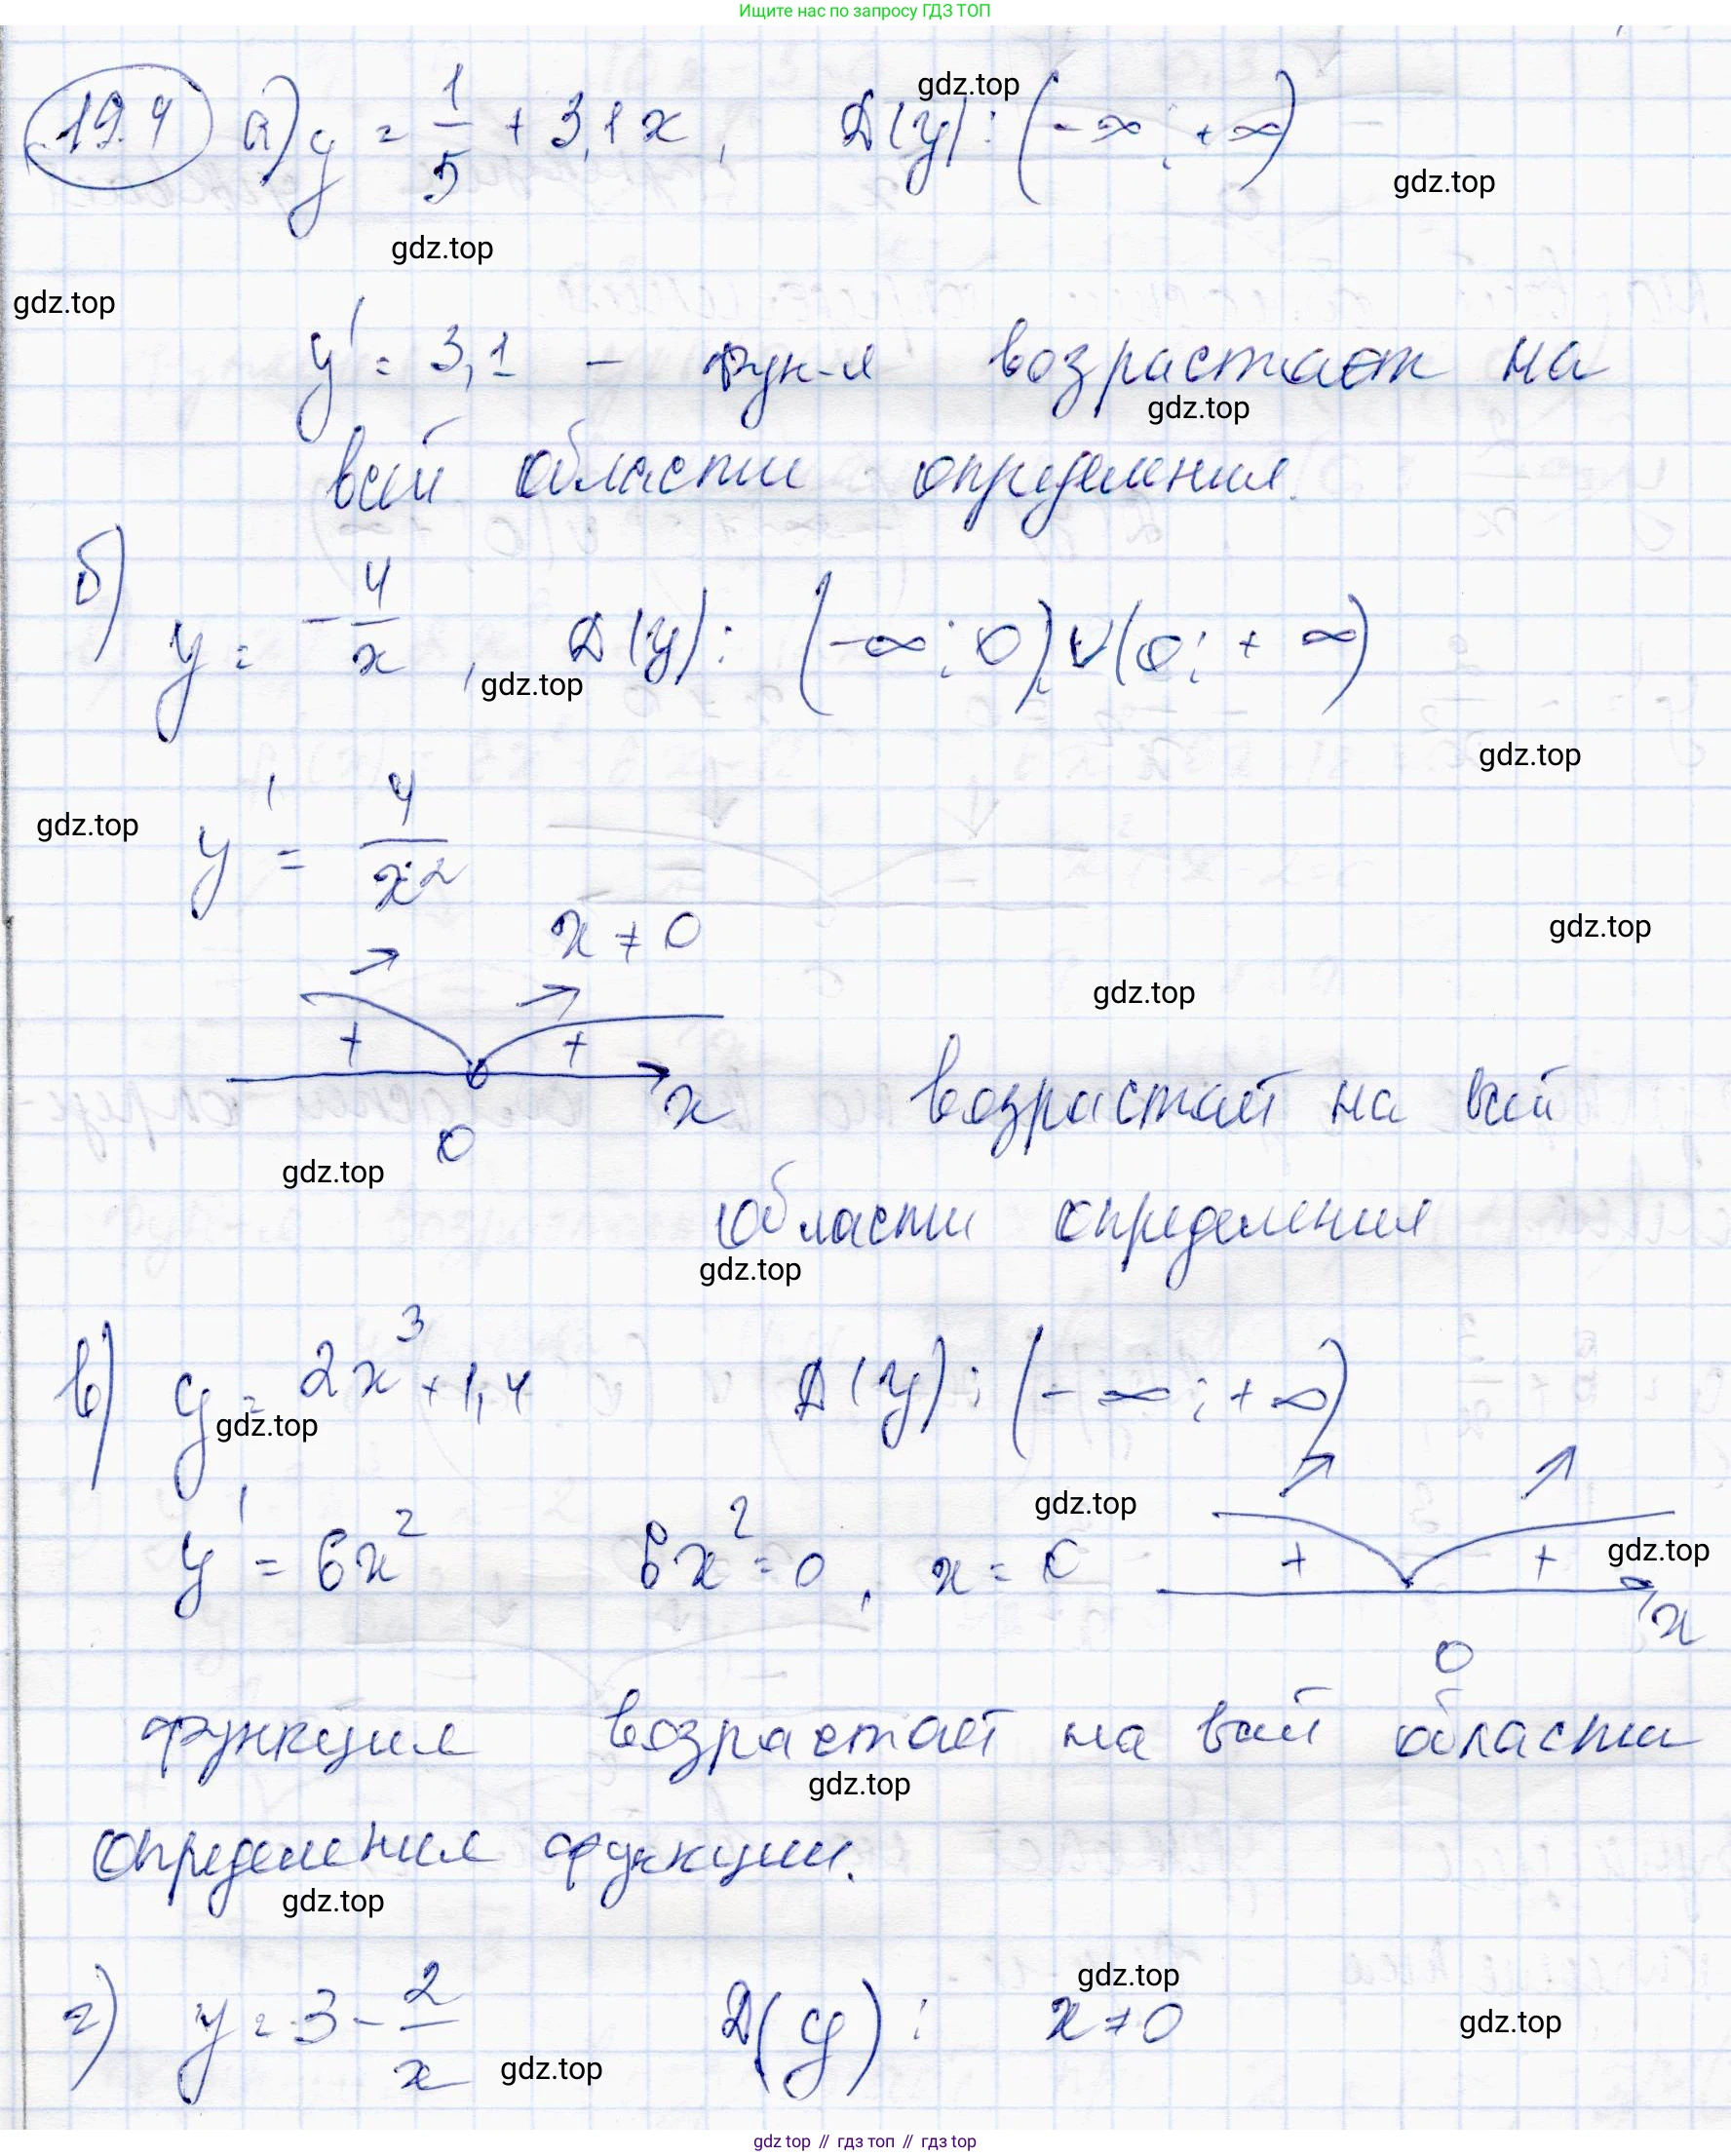 Ищите нас по запросу ГДЗ ТОП
19.4 а) y = 1/5 + 3,1x, D(y): (-∞; +∞)
gdz.top
gdz.top
gdz.top
gdz.top
y' = 3,1 - фун-я возрастает на
gdz.top
всей области определения.
б) y = -4/x, D(y): (-∞; 0) ∪ (0; +∞)
gdz.top
gdz.top
gdz.top
y' = 4/x²
x ≠ 0
gdz.top
gdz.top
+ +
0 x
возрастает на всей
gdz.top
области определения
gdz.top
в) y = 2x³ + 1,4 D(y): (-∞; +∞)
gdz.top
gdz.top
y' = 6x² 6x² = 0, x = 0
+ +
gdz.top
0 x
функция возрастает на всей области
gdz.top
определения функции.
gdz.top
gdz.top
г) y = 3 - 2/x D(y): x ≠ 0
gdz.top
gdz.top
gdz top // гдз топ // гдз top